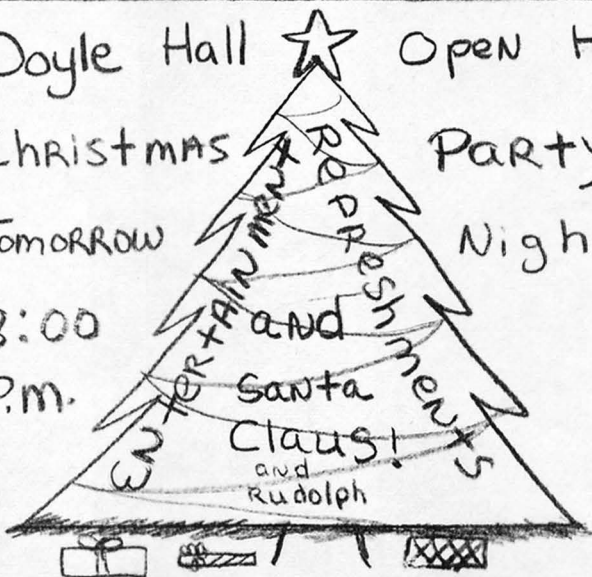 Doyle Hall Open H
Christmas Party
Tomorrow Nigh
8:00
P.m.
Entertainment
Refreshments
and
Santa
Claus!
and
Rudolph